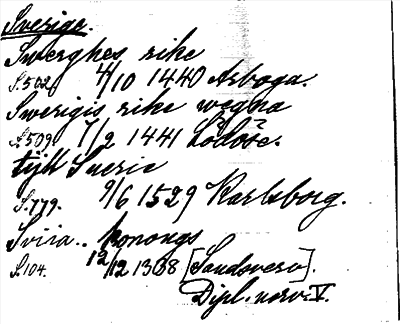 Sverige.
Swerghes rike
S.502. 4/10 1440 Arboga.
Swerigis rike wegna
S.509. 7/2 1441 Lödöse.
tijll Suerie
S.779. 9/6 1529 Karlsborg.
Sviia.. konongs
S.104. 12/12 1308 [Sandoverv].
Dipl. norv. V.